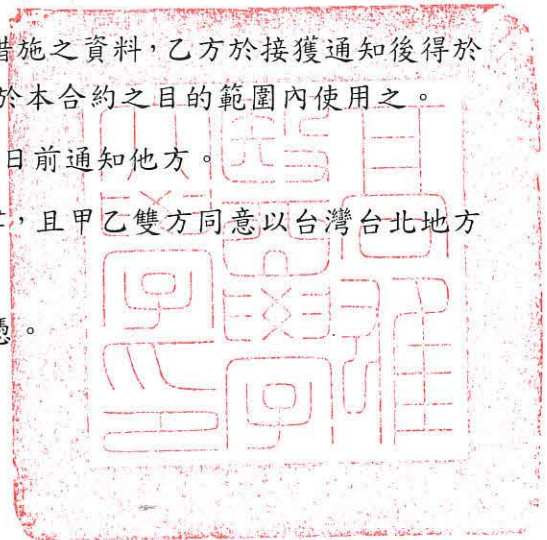 措施之資料，乙方於接獲通知後得於
於本合約之目的範圍內使用之。
日前通知他方。
，且甲乙雙方同意以台灣台北地方
憑。